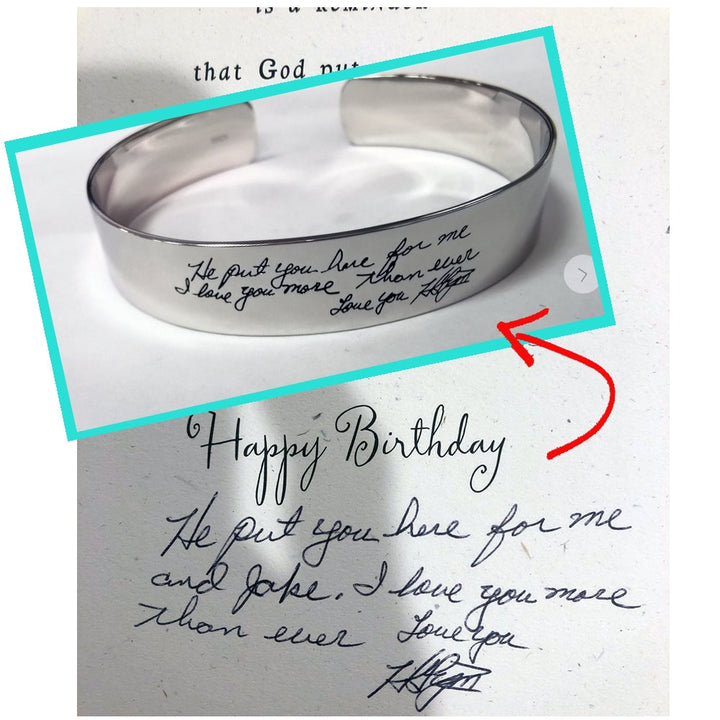 that God put
He put you here for me
I love you more than ever
Love you
Happy Birthday
He put you here for me
and Jake. I love you more
than ever Love you